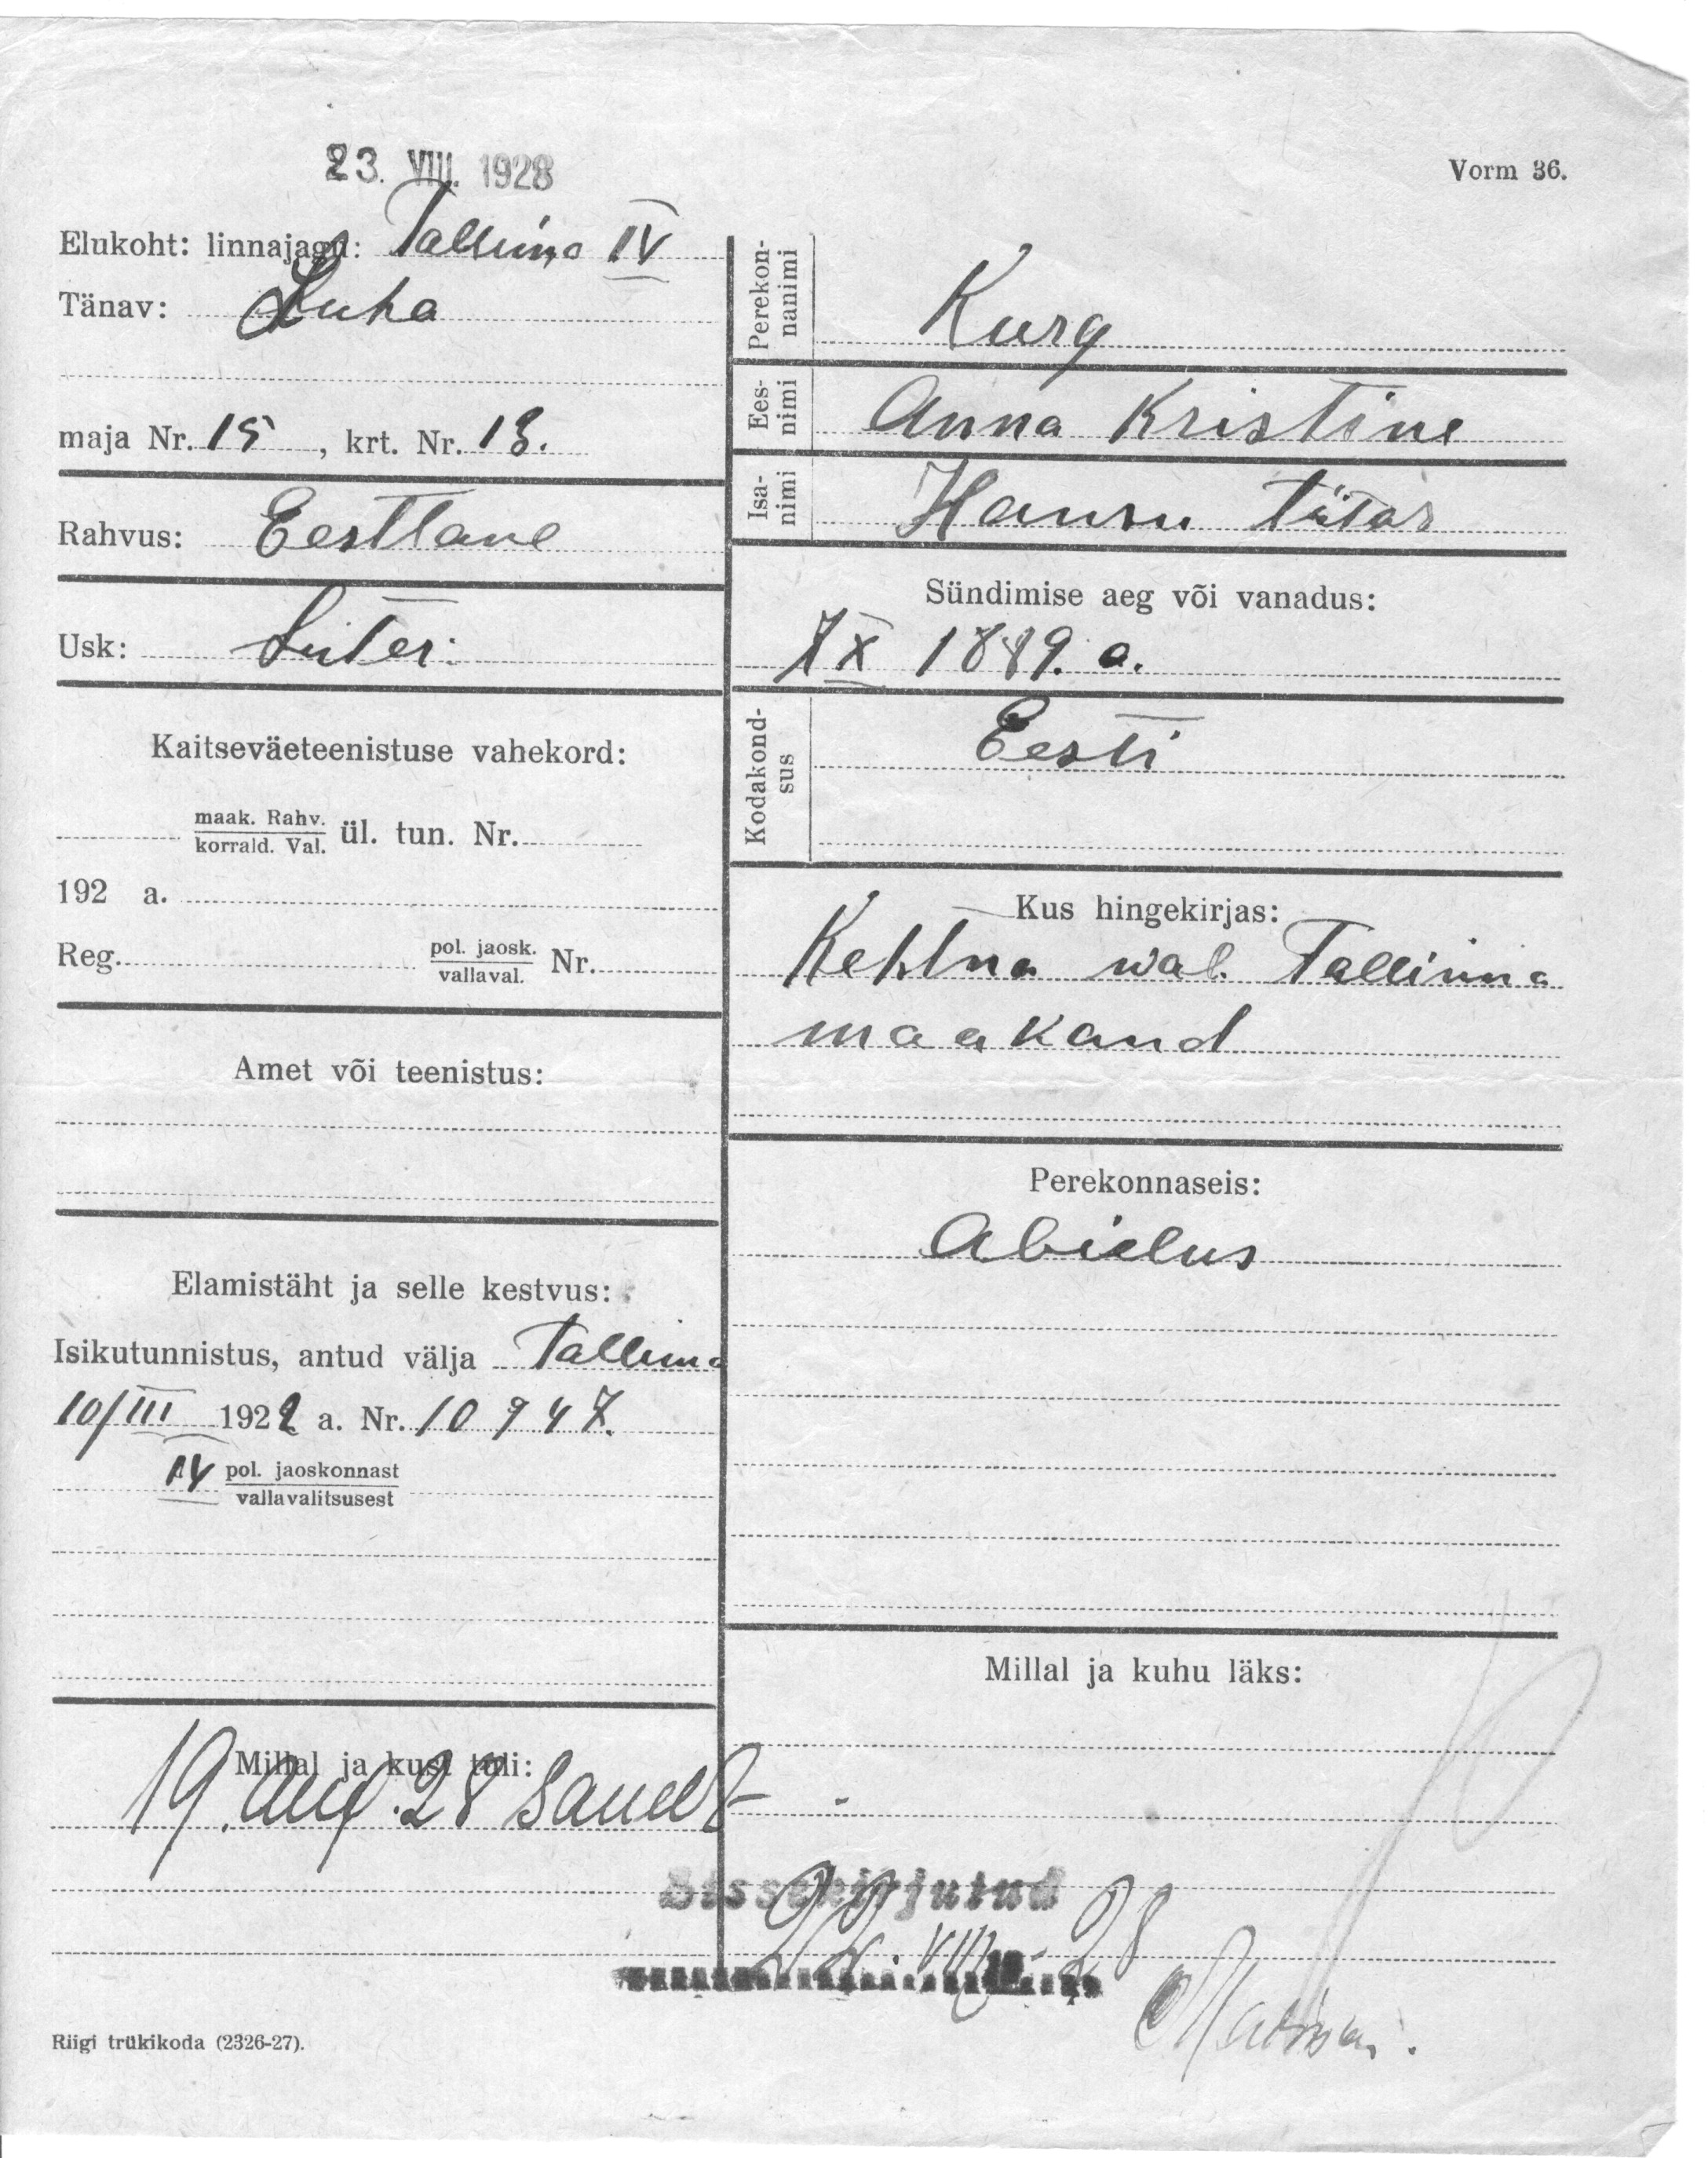 23. VIII. 1928
Vorm 36.
Elukoht: linnajagu: Tallinna IV
Tänav: Luha
maja Nr. 15, krt. Nr. 13.
Rahvus: Eestlane
Usk: Luter.
Kaitseväeteenistuse vahekord:
maak. Rahv.
korrald. Val.
ül. tun. Nr.
192 a.
Reg. pol. jaosk.
vallaval. Nr.
Amet või teenistus:
Elamistäht ja selle kestvus:
Isikutunnistus, antud välja Tallinna
10/III 1922 a. Nr. 10947.
IV pol. jaoskonnast
vallavalitsusest
Millal ja kust tuli:
19. aug. 28
Perekon-
nanimi
Kurg
Ees-
nimi
Anna Kristine
Isa-
nimi
Hansu tütar
Sündimise aeg või vanadus:
1889. a.
Kodakond-
sus
Eesti
Kus hingekirjas:
Kehtna wal. Tallinna
maakond
Perekonnaseis:
Abielus
Millal ja kuhu läks:
Sissekirjutud
22. VIII 28
Riigi trükikoda (2326-27).